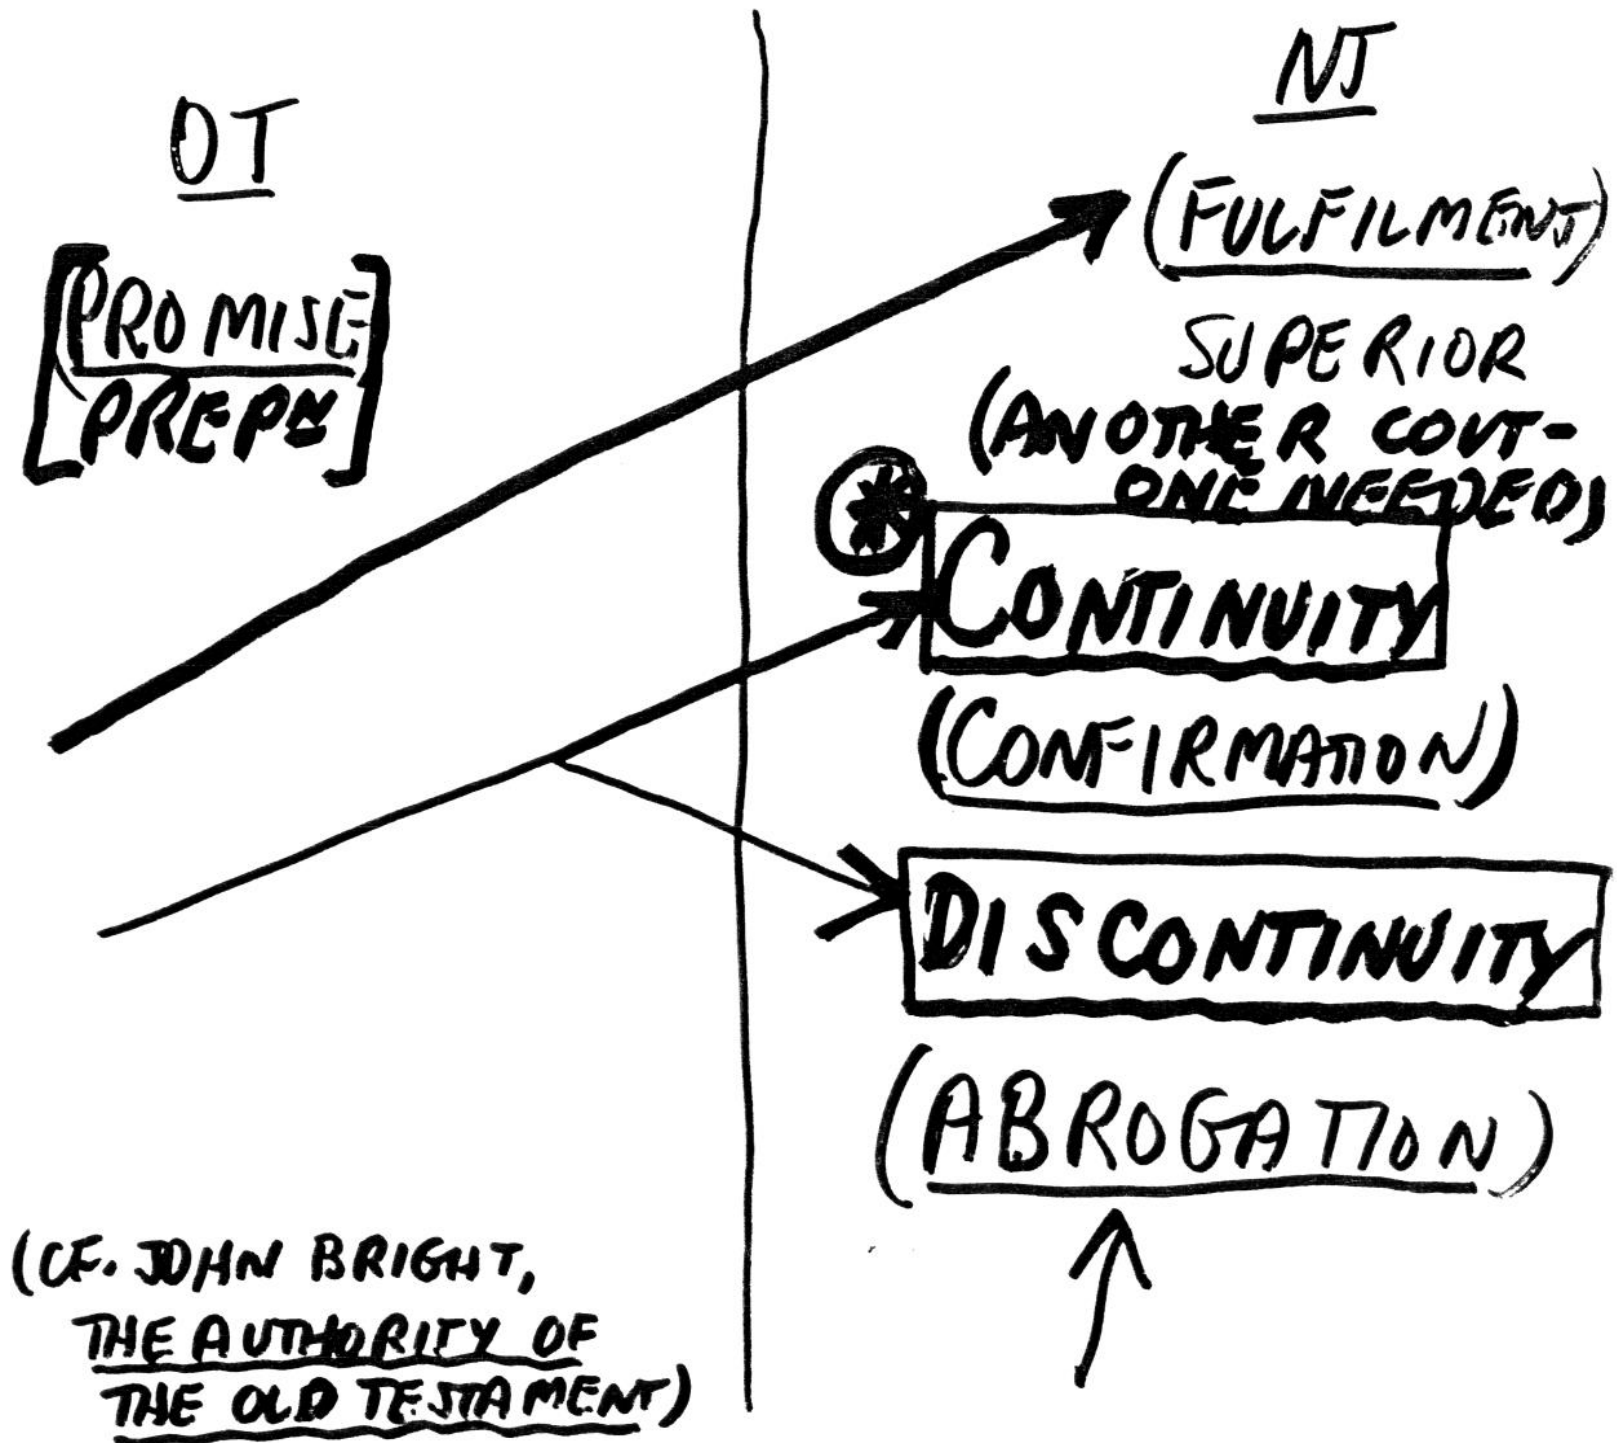 OT
[PROMISE
PREPN]
(CF. JOHN BRIGHT,
THE AUTHORITY OF
THE OLD TESTAMENT)
NT
(FULFILMENT)
SUPERIOR
(ANOTHER COVT-
ONE NEEDED)
*
CONTINUITY
(CONFIRMATION)
DISCONTINUITY
(ABROGATION)